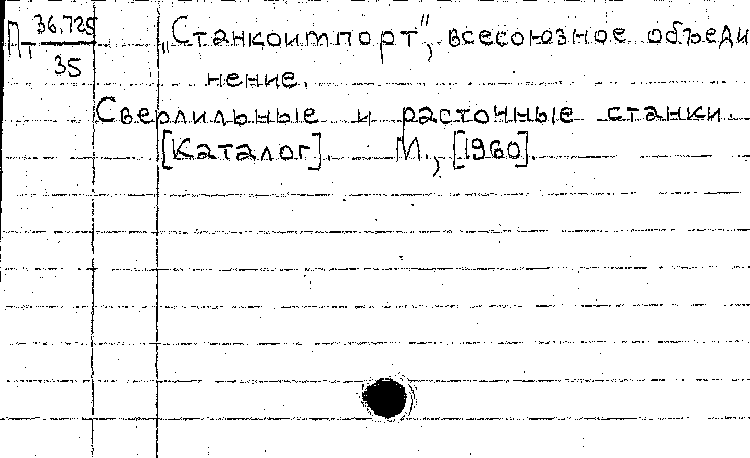 П 36.725
35
"Станкоимпорт", всесоюзное объеди
нение.
Сверлильные и расточные станки.
[Каталог]. М., [1960].